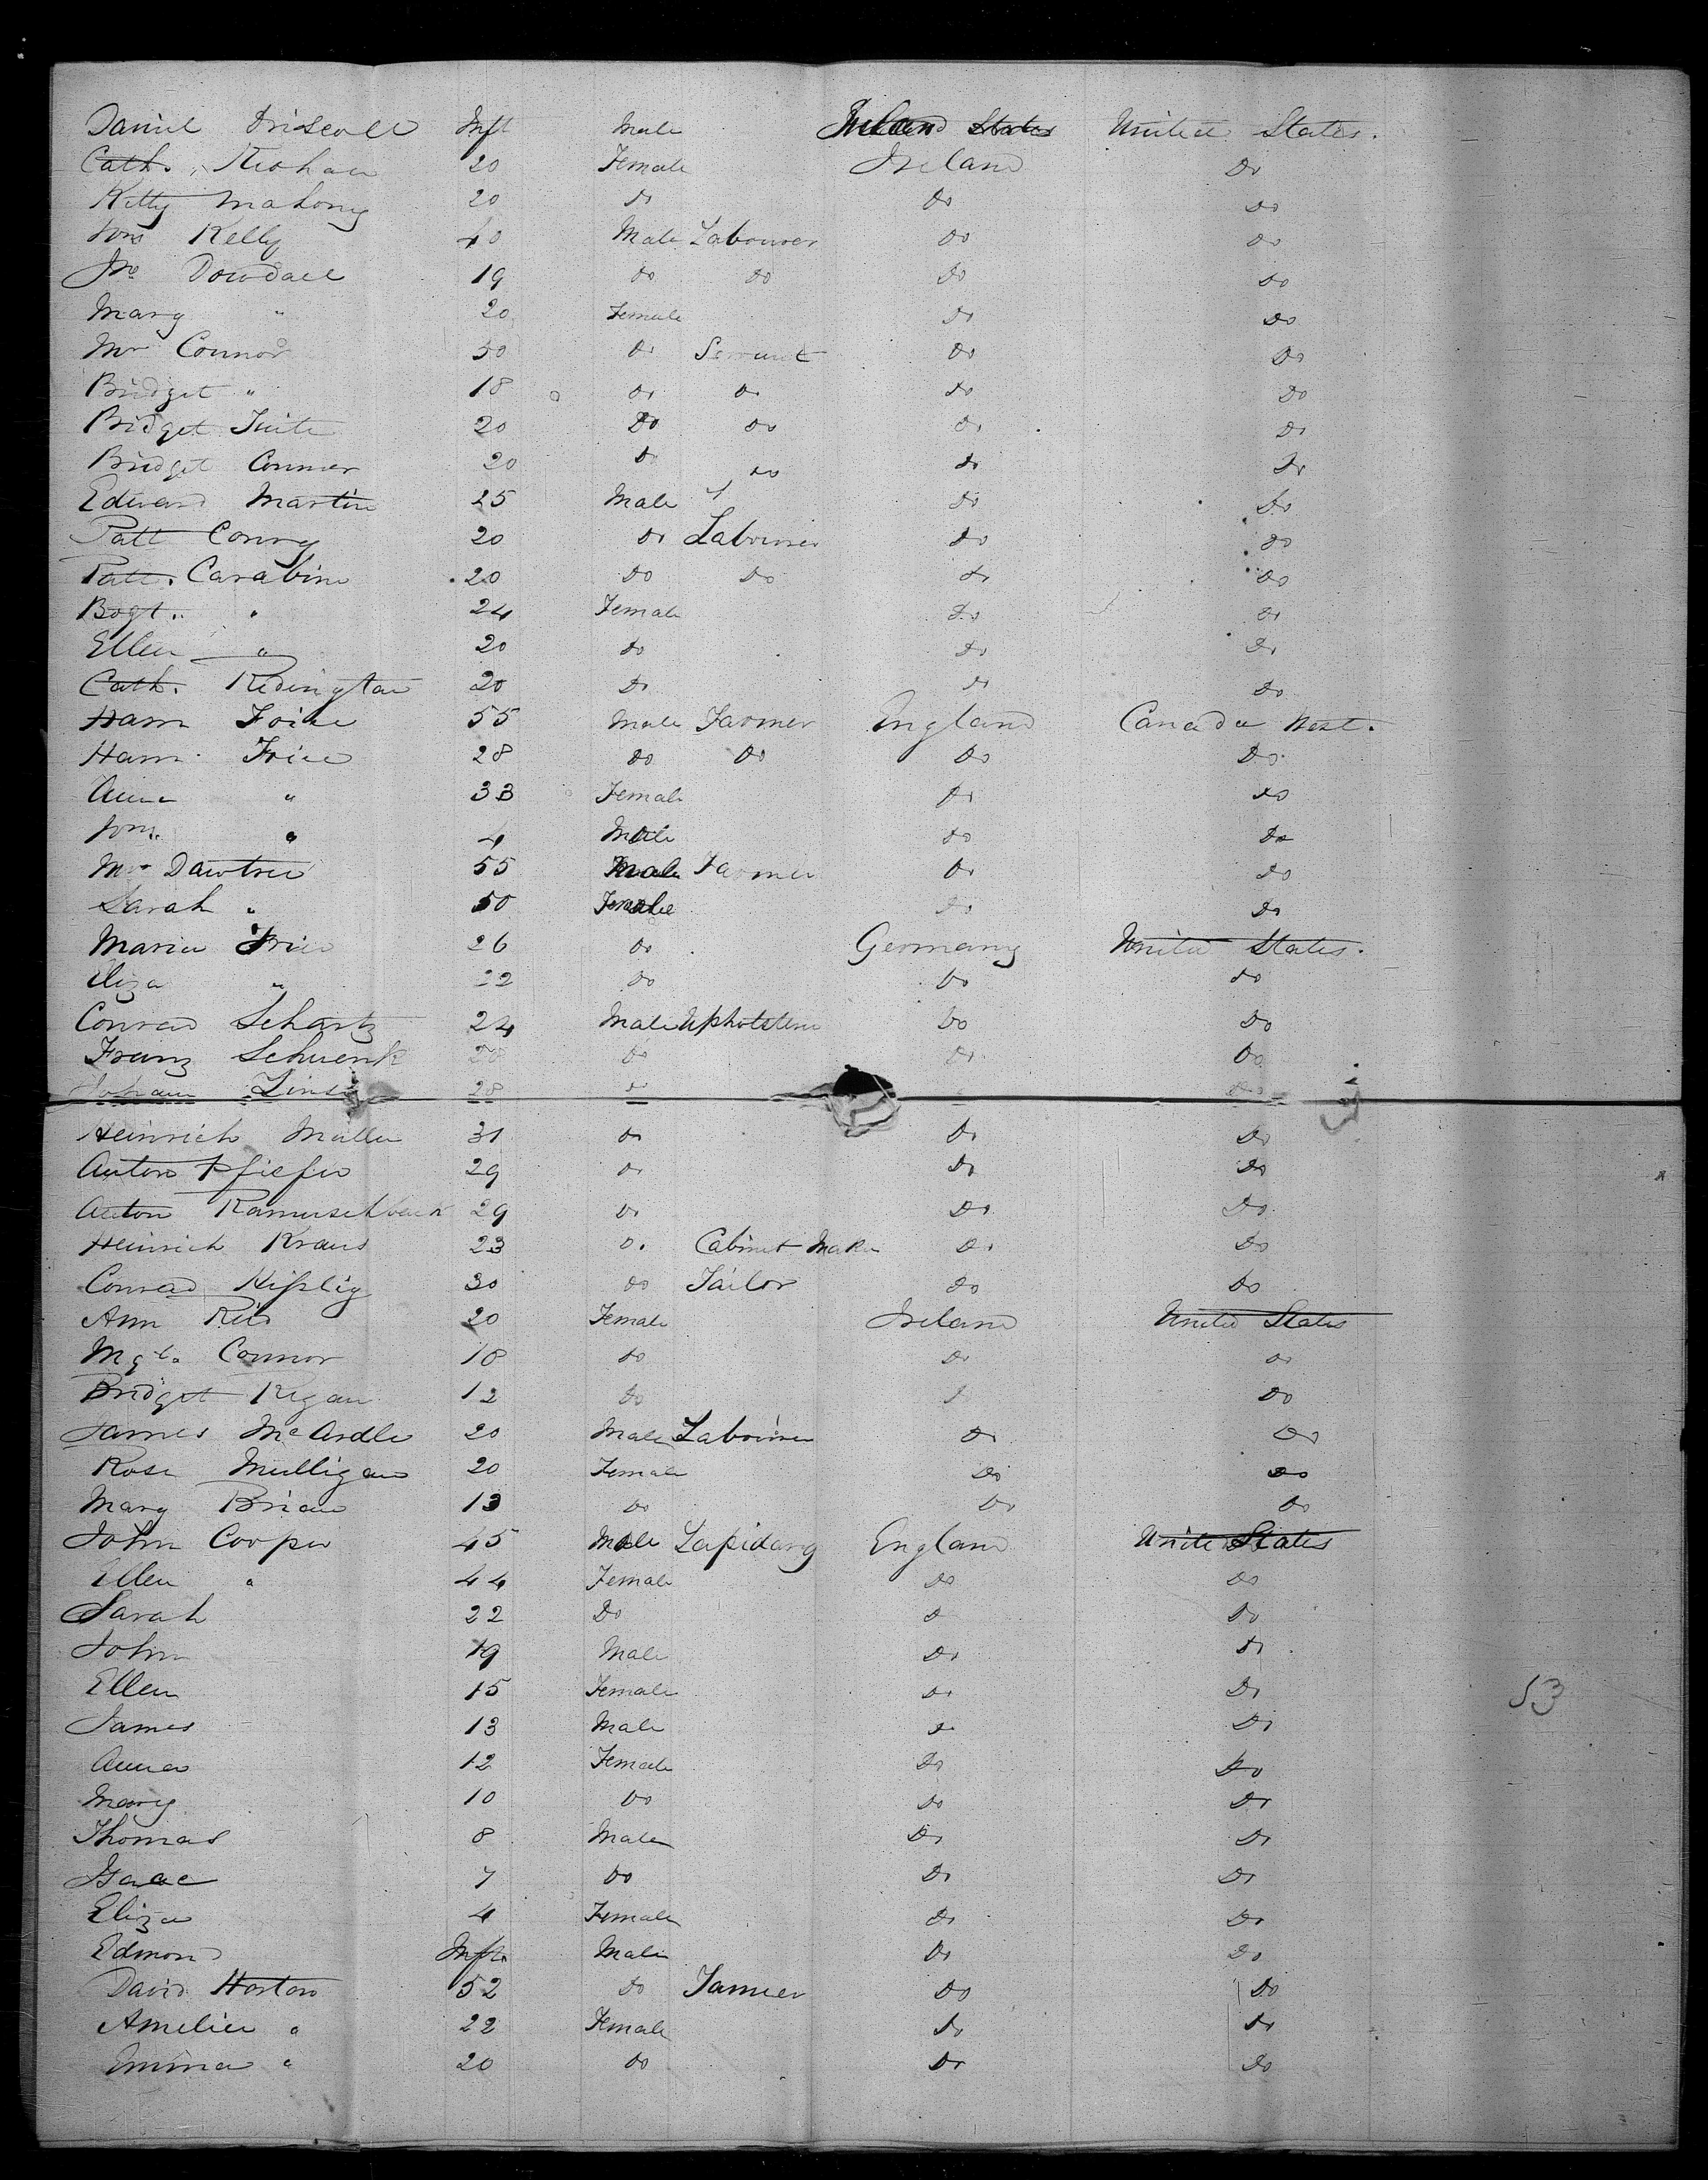 Daniel Driscoll Inft Male Ireland States United States.
Cath. Keohan 20 Female Ireland Do
Kitty Mahony 20 do Do Do
Kelly 40 Male Labourer Do Do
Jno Dowdall 19 do do Do Do
Mary " 20 Female Do Do
Mr Connor 50 Do Servant Do Do
Bridget " 18 Do Do Do Do
Bridget Tuite 20 Do Do Do Do
Bridget Connor 20 D Do Do Do
Edward Martin 25 Male Do Do
Patt Conry 20 Do Labourer Do Do
Patt. Carabine 20 Do Do Do Do
Bogt. " 24 Female Do Do
Ellen " 20 do Do Do
Cath. Redington 20 Do Do Do
Ham 55 Male Farmer England Canada West.
Ham 28 Do Do Do Do
Anne " 33 Female Do Do
" 4 Male Do Do
Mr Dawtree 55 Male Farmer Do Do
Sarah " 50 Female Do Do
Maria 26 Do Germany United States.
Eliza " 22 Do Do Do
Conrad Schartz 24 Male Upholsterer Do Do
Franz Schwenk 28 Do Do Do
Johann 28 Do
Heinrich Muller 31 Do Do Do
Anton Pfiefer 29 Do Do Do
Anton 29 Do Do Do
Heinrich Kraus 23 Do Cabinet Maker Do Do
Conrad 30 Do Tailor Do Do
Ann Reid 20 Female Ireland United States
Mgt. Connor 18 do Do Do
Bridget Regan 12 Do D Do
James McArdle 20 Male Labourer Do Do
Rose Mulligan 20 Female Do Do
Mary Brian 13 Do Do Do
John Cooper 45 Male Lapidary England United States
Ellen " 44 Female Do Do
Sarah 22 Do D Do
John 19 Male Do Do
Ellen 15 Female Do Do
James 13 Male Do Do
Anna 12 Female Do Do
Mary 10 Do Do Do
Thomas 8 Male Do Do
Isaac 7 Do Do Do
Eliza 4 Female Do Do
Edmond Inft. Male Do Do
David Horton 52 Do Do Do
Amelia " 22 Female Do Do
Emma " 20 Do Do Do
53